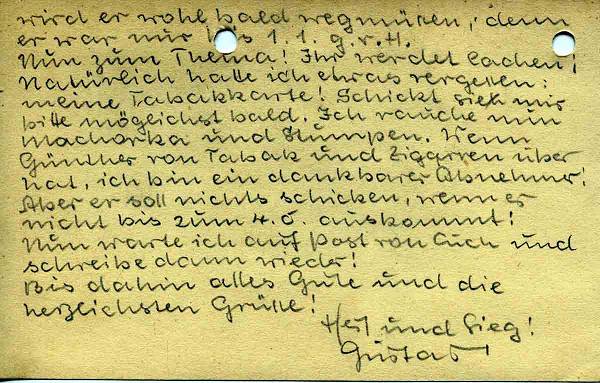 wird er wohl bald wegmüssen, denn
er war nur bis 1.1. g.v.H.
Nun zum Thema! Ihr werdet lachen!
Natürlich hatte ich etwas vergessen:
meine Tabakkarte! Schickt sie mir
bitte möglichst bald. Ich rauche nun
Machorka und Stumpen. Wenn
Günther von Tabak und Zigarren über
hat, ich bin ein dankbarer Abnehmer!
Aber er soll nichts schicken, wenn er
nicht bis zum 4.5. auskommt!
Nun warte ich auf Post von Euch und
schreibe dann wieder!
Bis dahin alles Gute und die
herzlichsten Grüße!
Heil und Sieg!
Gustav